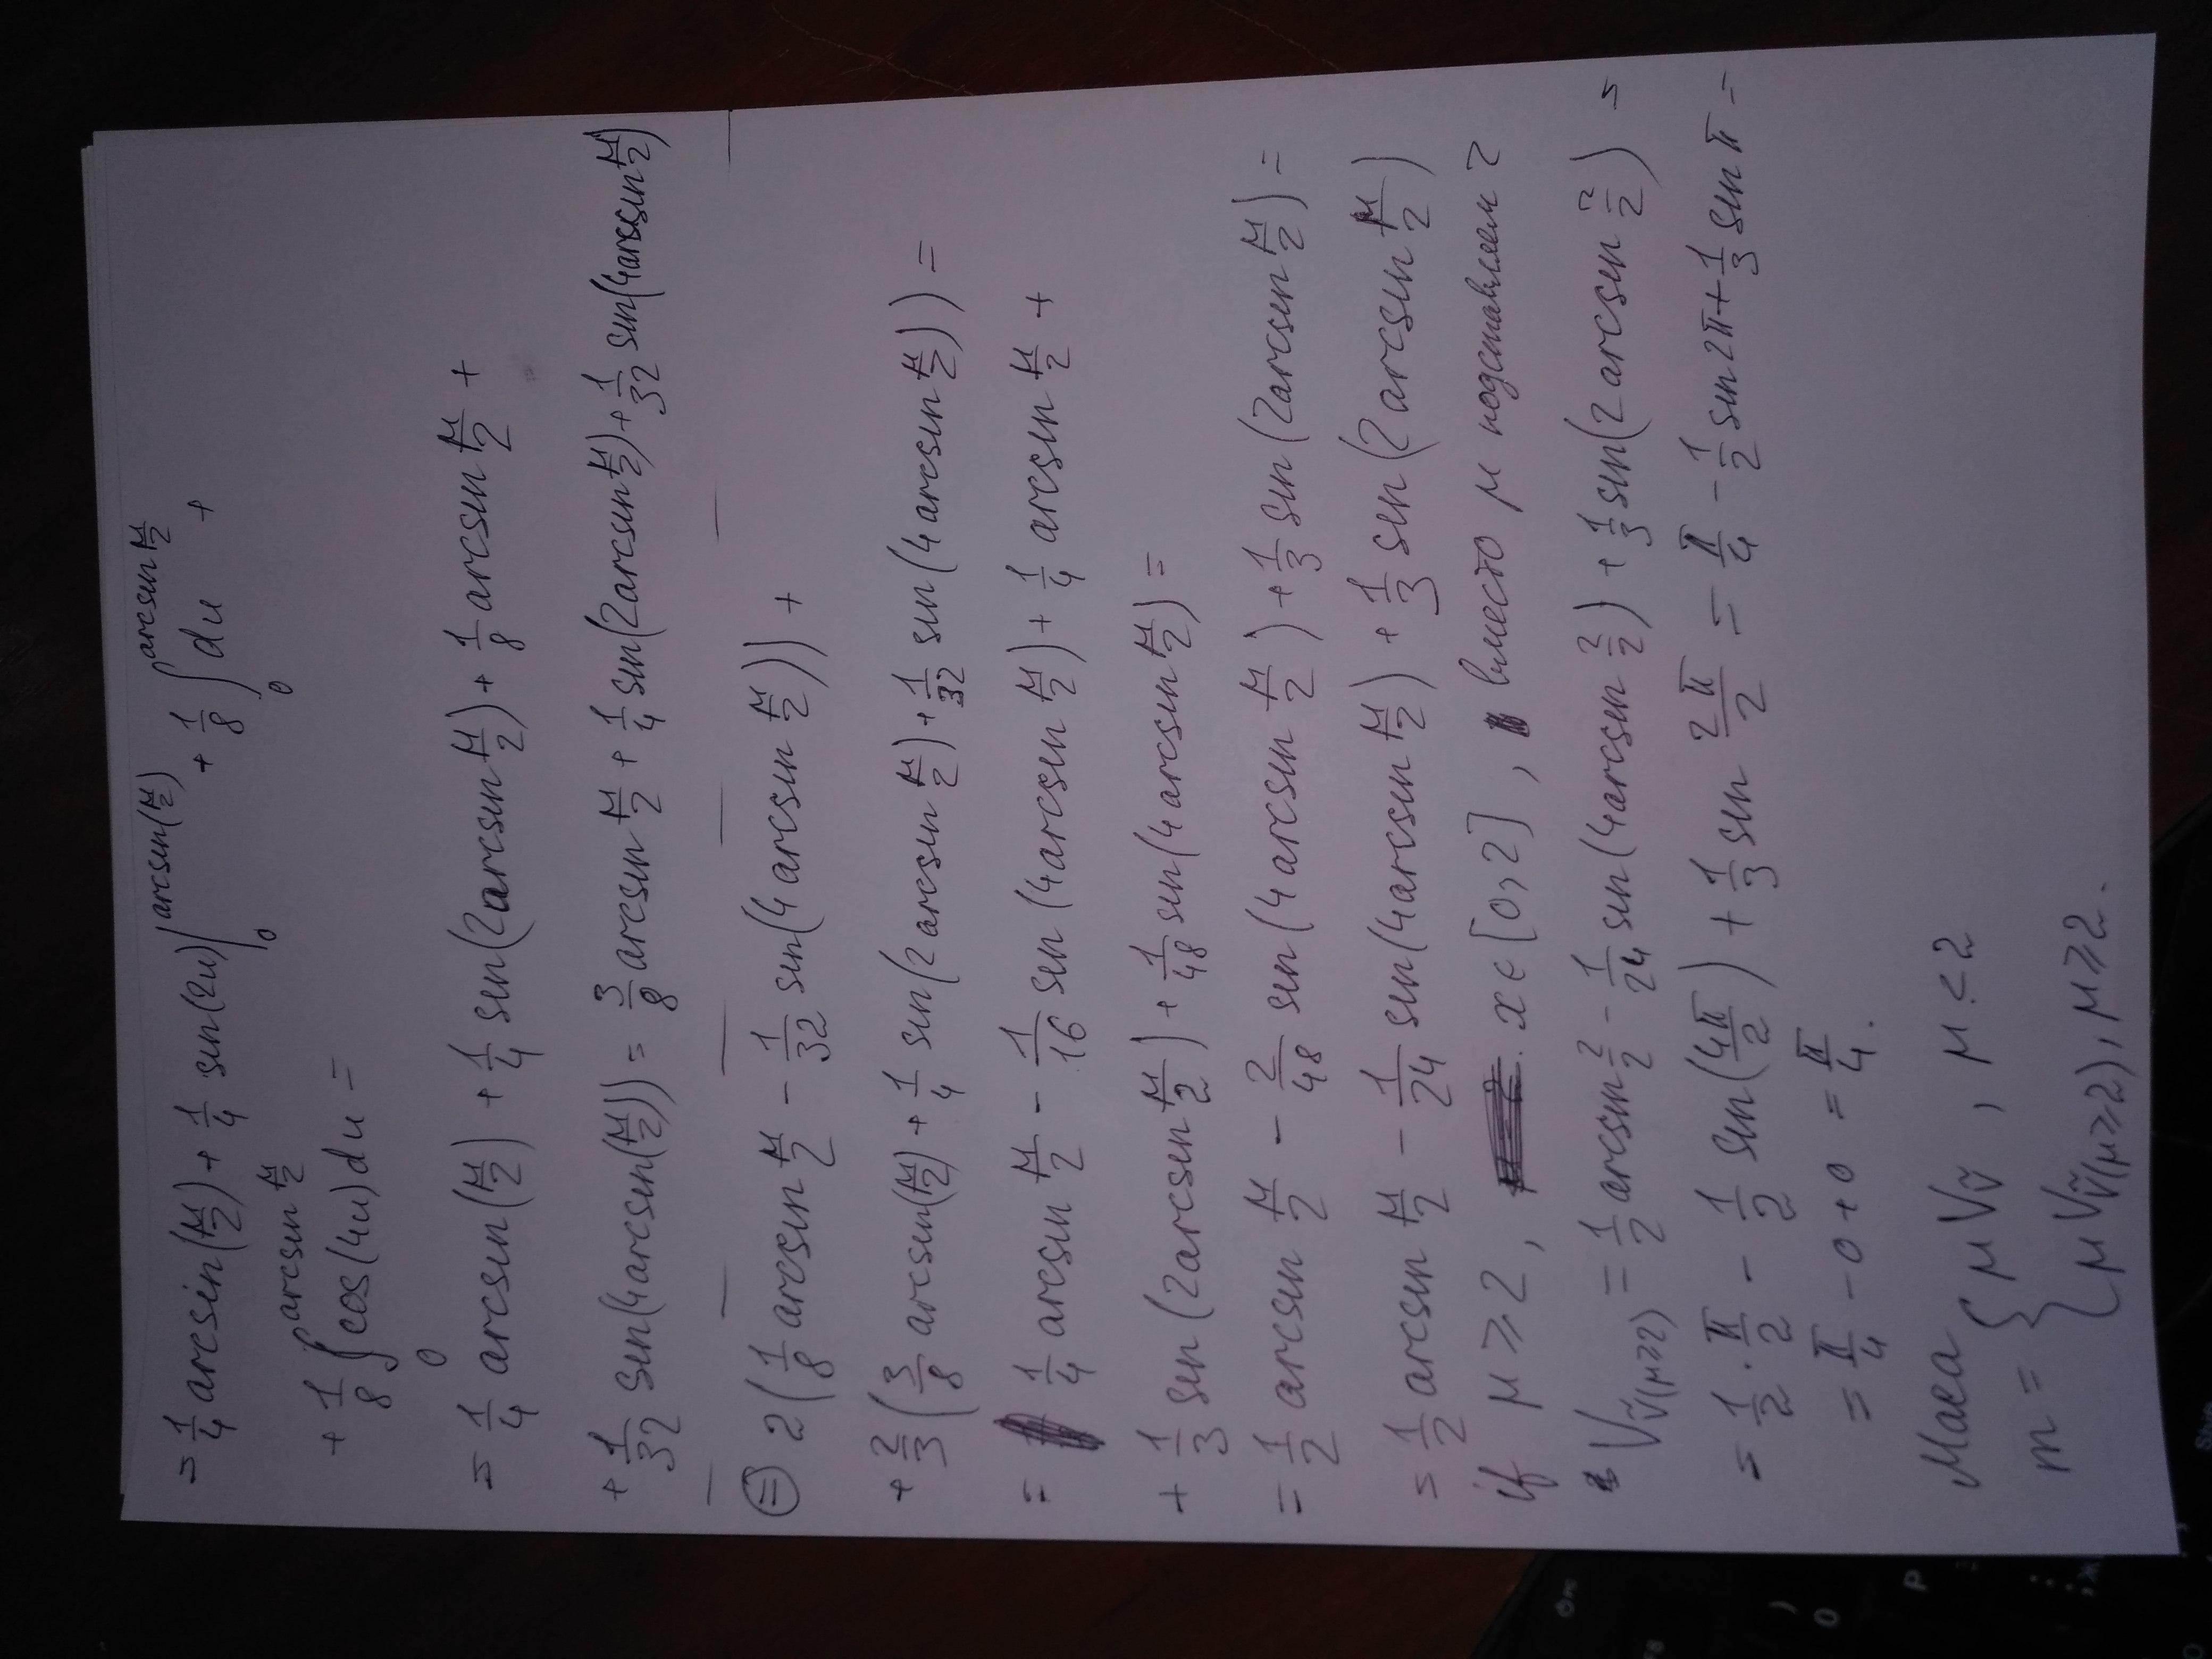 = 1/4 arcsin(μ/2) + 1/4 sin(2u)|₀^arcsin(μ/2) + 1/8 ∫₀^arcsin μ/2 du +
+ 1/8 ∫₀^arcsin μ/2 cos(4u)du =
= 1/4 arcsin(μ/2) + 1/4 sin(2arcsin μ/2) + 1/8 arcsin μ/2 +
+ 1/32 sin(4arcsin(μ/2))) = 3/8 arcsin μ/2 + 1/4 sin(2arcsin μ/2) + 1/32 sin(4arcsin μ/2)
⊜ 2(1/8 arcsin μ/2 - 1/32 sin(4 arcsin μ/2)) +
+ 2/3 (3/8 arcsin(μ/2) + 1/4 sin(2 arcsin μ/2) + 1/32 sin(4 arcsin μ/2)) =
= 1/4 arcsin μ/2 - 1/16 sin(4arcsin μ/2) + 1/4 arcsin μ/2 +
+ 1/3 sin(2arcsin μ/2) + 1/48 sin(4arcsin μ/2) =
= 1/2 arcsin μ/2 - 2/48 sin(4arcsin μ/2) + 1/3 sin(2arcsin μ/2) =
= 1/2 arcsin μ/2 - 1/24 sin(4arcsin μ/2) + 1/3 sin(2arcsin μ/2)
if μ ⩾ 2, x ∈ [0,2], вместо μ подставляем 2
V_ṽ(μ⩾2) = 1/2 arcsin 2/2 - 1/24 sin(4arcsin 2/2) + 1/3 sin(2arcsin 2/2) =
= 1/2 · π/2 - 1/2 sin(4π/2) + 1/3 sin 2π/2 = π/4 - 1/2 sin 2π + 1/3 sin π =
= π/4 - 0 + 0 = π/4.
Маса
m = { μ V_ṽ, μ < 2
μ V_ṽ(μ⩾2), μ ⩾ 2.